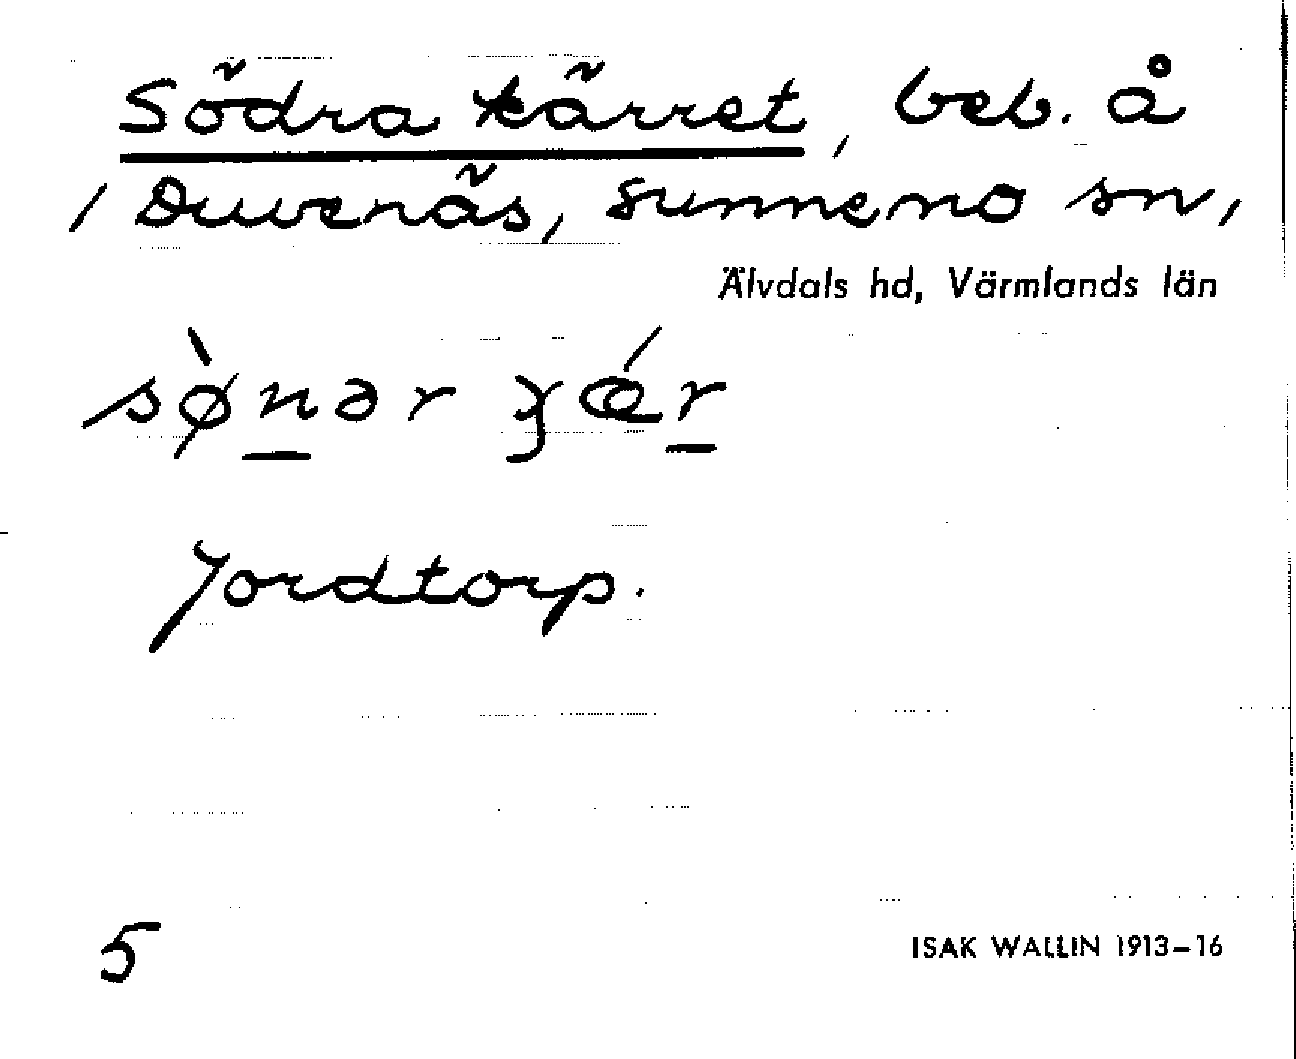 Södra kärret, beb. å
/ Duvenäs, Sunnemo sn,
Älvdals hd, Värmlands län
sø̀n̲ər ɣǽr̲
Jordtorp.
5
ISAK WALLIN 1913–16